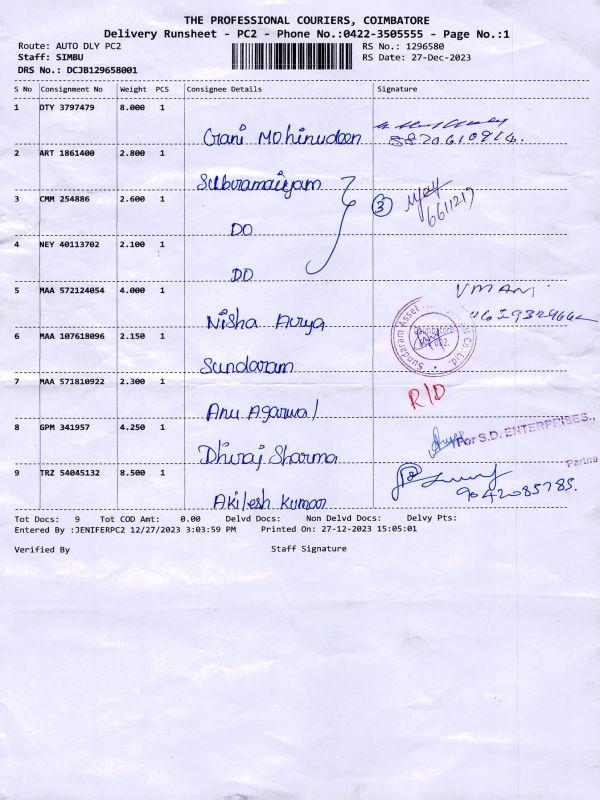 THE PROFESSIONAL COURIERS, COIMBATORE
Delivery Runsheet - PC2 - Phone No.:0422-3505555 - Page No.:1
Route: AUTO DLY PC2
RS No.: 1296580
Staff: SIMBU
RS Date: 27-Dec-2023
DRS No.: DCJB129658001
S No Consignment No Weight PCS Consignee Details Signature
1 DTY 3797479 8.000 1
Grani Mohinudeen 8820610914.
2 ART 1861400 2.800 1
Subramaiyam
3 CMM 254886 2.600 1
3 6611217
DO
4 NEY 40113702 2.100 1
DO
5 MAA 572124054 4.000 1
VMANI
Nisha Aurya
6 MAA 107618096 2.150 1
Sundaram Asset
Coimbatore
Sundaram
7 MAA 571810922 2.300 1
R/D
Anu Agarwal
8 GPM 341957 4.250 1
For S.D. ENTERPRISES.,
Dhiraj Sharma
9 TRZ 54045132 8.500 1
9042085785.
Akilesh Kumar
Tot Docs: 9 Tot COD Amt: 0.00 Delvd Docs: Non Delvd Docs: Delvy Pts:
Entered By :JENIFERPC2 12/27/2023 3:03:59 PM Printed On: 27-12-2023 15:05:01
Verified By Staff Signature